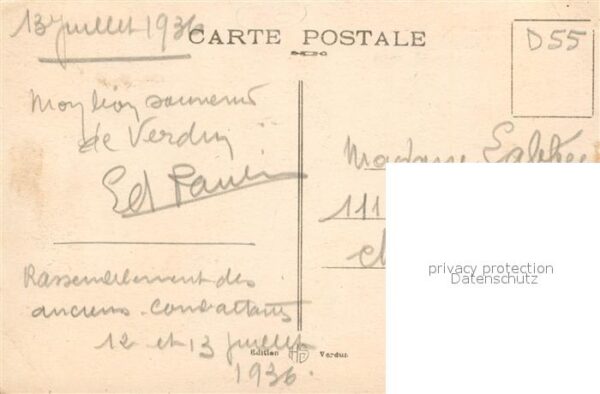 13 juillet 1936
CARTE POSTALE
D55
Mon bon souvenir
de Verdun
Ed
Madame
111
Rassemblement des
anciens combattants
12 et 13 juillet
1936.
Edition HD Verdun
privacy protection
Datenschutz